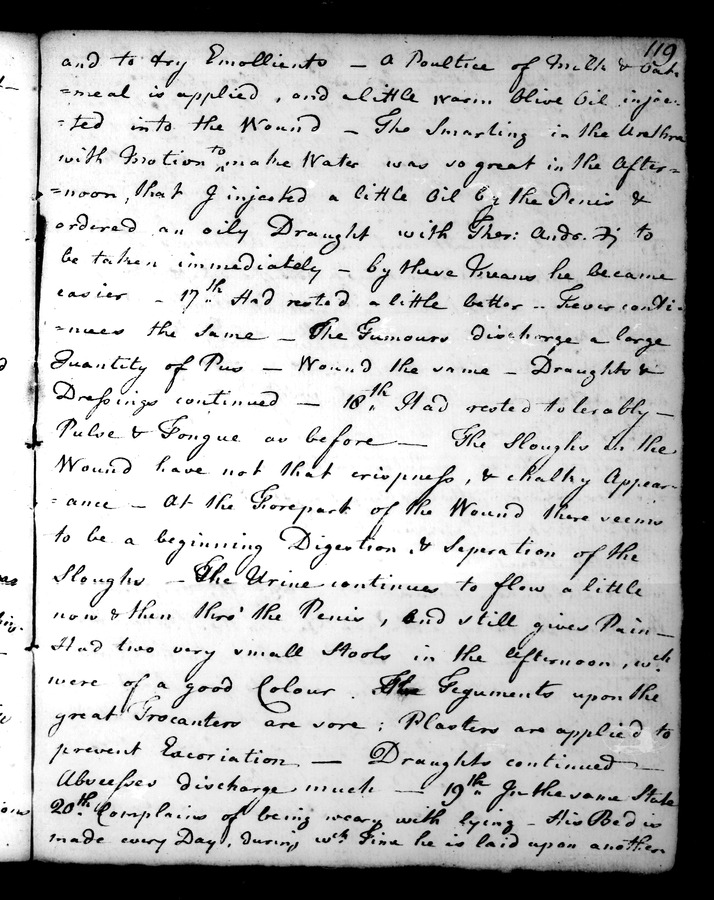 119
and to try Emollients — a Poultice of Milk & Oat-
=meal is applied, and a little warm Olive Oil injec-
-ted into the Wound — The Smarting in the Urethra
with Motion to make Water was so great in the After=
=noon, that I injected a little Oil by the Penis &
ordered an oily Draught with Ther: Andr. ʒj to
be taken immediately — by these Means he became
easier — 17th Had rested a little better — Fever conti-
=nues the same — The Tumours discharge a large
Quantity of Pus — Wound the same — Draughts &
Dressings continued — 18th Had rested tolerably —
Pulse & Tongue as before — The Sloughs in the
Wound have not that crispness, & chalky Appear-
=ance — At the Forepart of the Wound there seems
to be a beginning Digestion & Seperation of the
Sloughs — The Urine continues to flow a little
now & then thro' the Penis, and still gives Pain —
Had two very small Stools in the Afternoon, wch
were of a good Colour. The Teguments upon the
great Trocanters are sore; Plasters are applied to
prevent Excoriation — Draughts continued —
Abscesses discharge much — 19th In the same State
20th Complains of being weary with lying — His Bed is
made every Day, during wch Time he is laid upon another